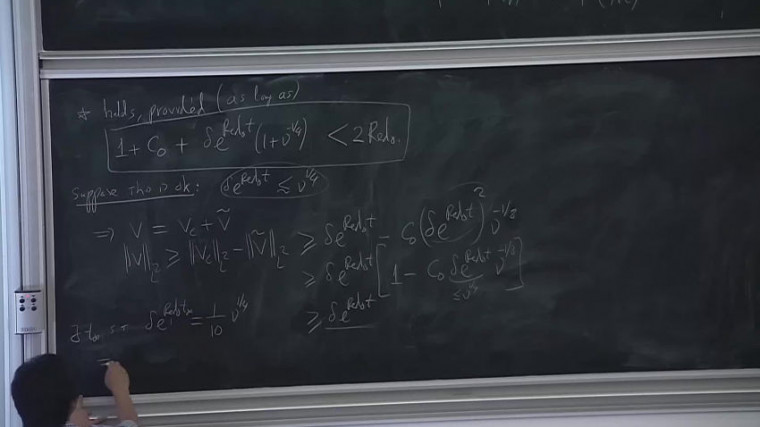 * holds, provided (as long as)
1 + C₀ + δe^{Reλ₀t}(1+ν^{-1/4}) < 2Reλ₀.
Suppose this is ok: δe^{Reλ₀t} ≲ ν^{1/4}
⇒ V = V_c + Ṽ
‖V‖_{L²} ≥ ‖V_c‖_{L²} - ‖Ṽ‖_{L²} ≥ δe^{Reλ₀t} - C₀(δe^{Reλ₀t})² ν^{-1/8}
≥ δe^{Reλ₀t}[1 - C₀ δe^{Reλ₀t} ν^{-1/8}]
≤ν^{1/4}
≥ δe^{Reλ₀t}
∃ t_∞, s.t. δe^{Reλ₀t_∞} = 1/10 ν^{1/4}
⇒